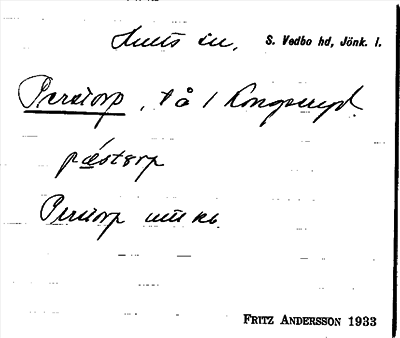 Hults sn, S. Vedbo hd, Jönk. l.
Perstorp, t å / Kongseryd.
pǽstɛrp
Perstorp
FRITZ ANDERSSON 1933